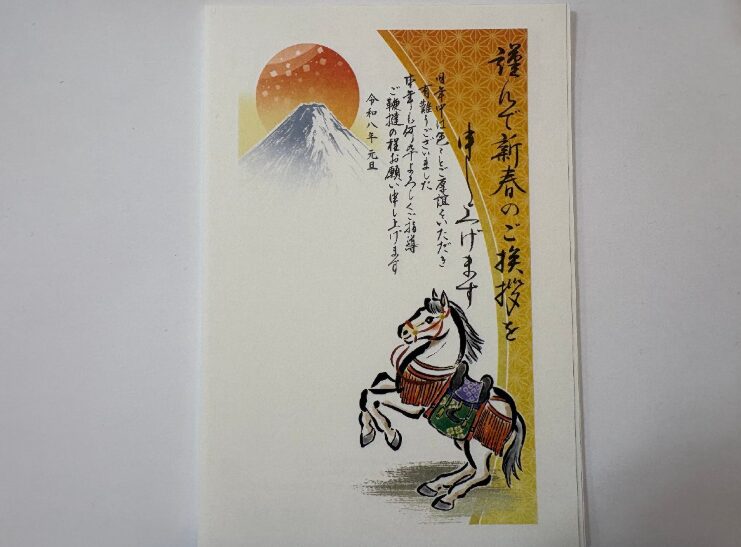 謹んで新春のご挨拶を
申し上げます
旧年中は色々とご厚誼をいただき
有難うございました
本年も何卒よろしくご指導
ご鞭撻の程お願い申し上げます
令和八年 元旦